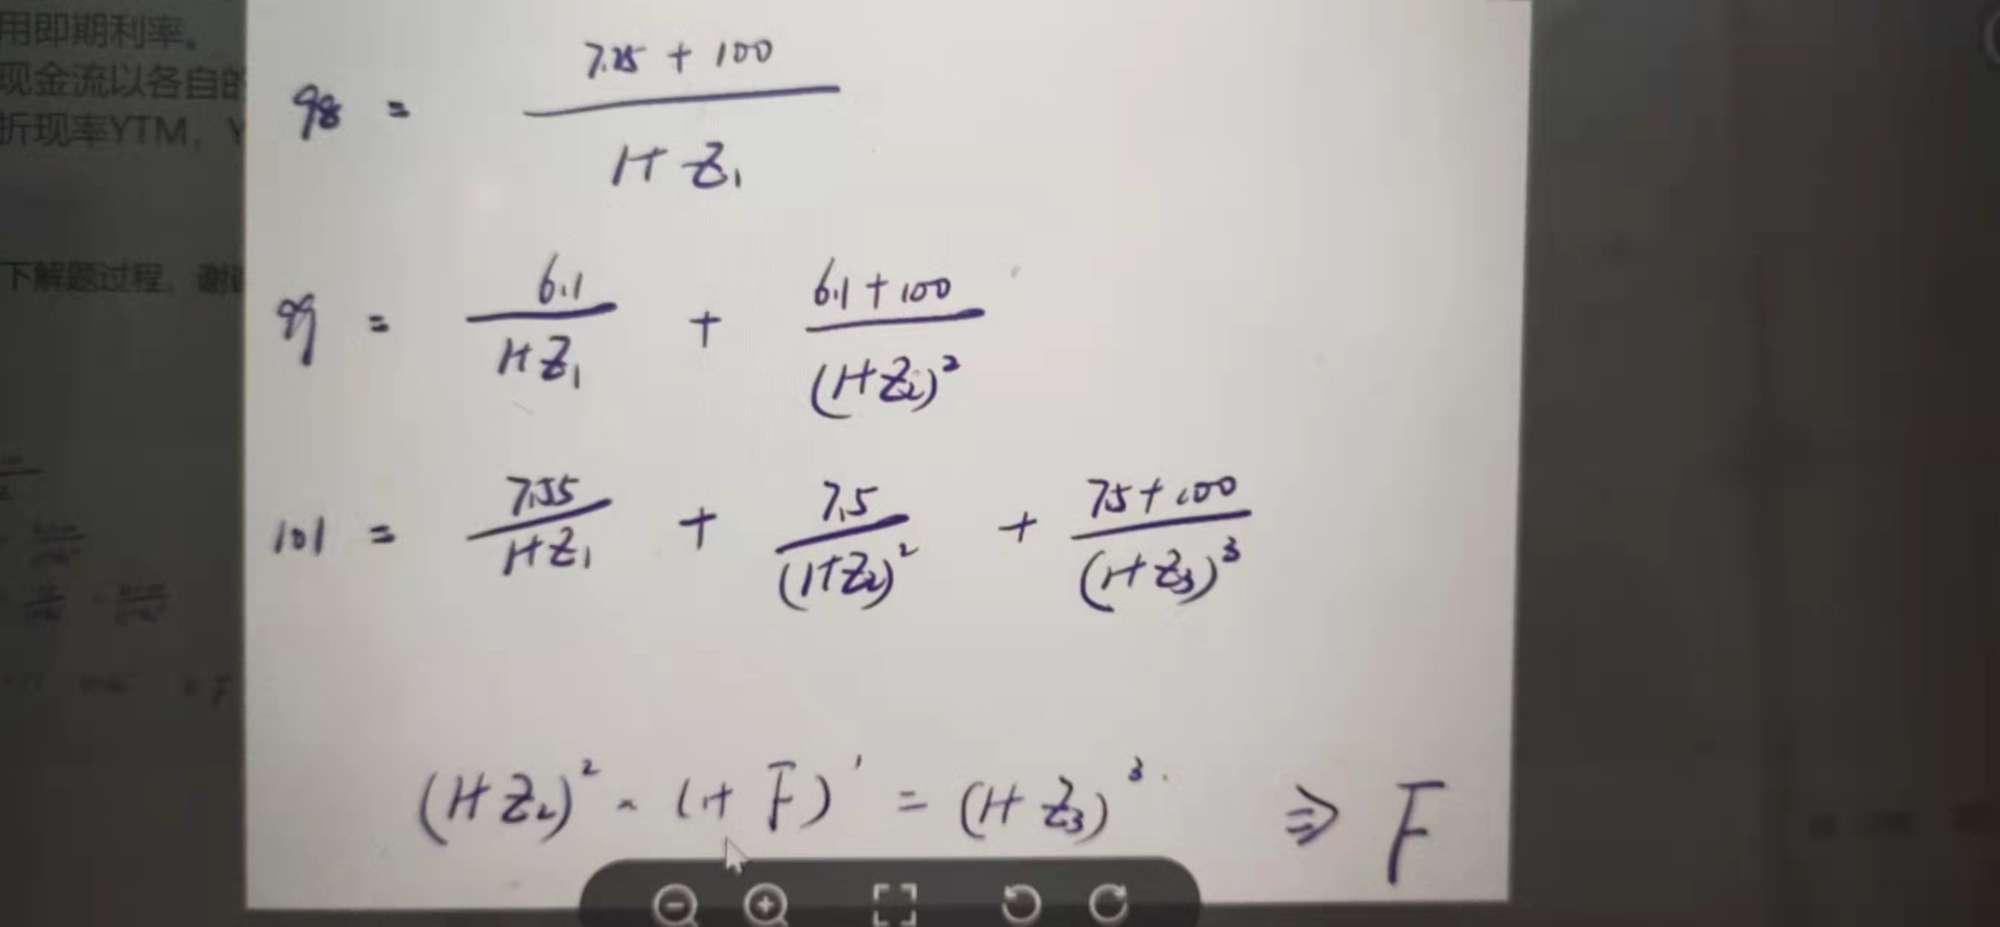 用即期利率。
现金流以各自的
折现率YTM,
下解题过程。谢
98 = \frac{7.25 + 100}{1+Z_1}
99 = \frac{6.1}{1+Z_1} + \frac{6.1+100}{(1+Z_2)^2}
101 = \frac{7.55}{1+Z_1} + \frac{7.5}{(1+Z_2)^2} + \frac{7.5+100}{(1+Z_3)^3}
(1+Z_2)^2 · (1+F)^1 = (1+Z_3)^3 ⇒ F